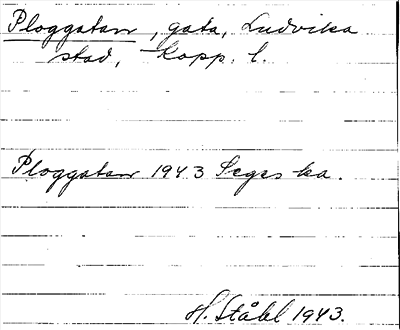 Ploggatan, gata, Ludvika
stad, Kopp. l.
Ploggatan 1943 Seges ka.
H. Ståhl 1943.